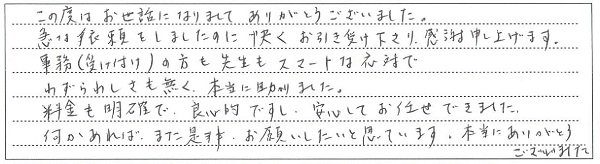 この度はお世話になりまして ありがとうございました。
急な依頼をしましたのに快くお引き受け下さり、感謝申し上げます。
事務(受け付け)の方も先生もスマートな応対で
わずらわしさも無く、本当に助かりました。
料金も明確で、良心的ですし、安心してお任せできました。
何かあれば、また是非、お願いしたいと思っています。本当にありがとう
ございました